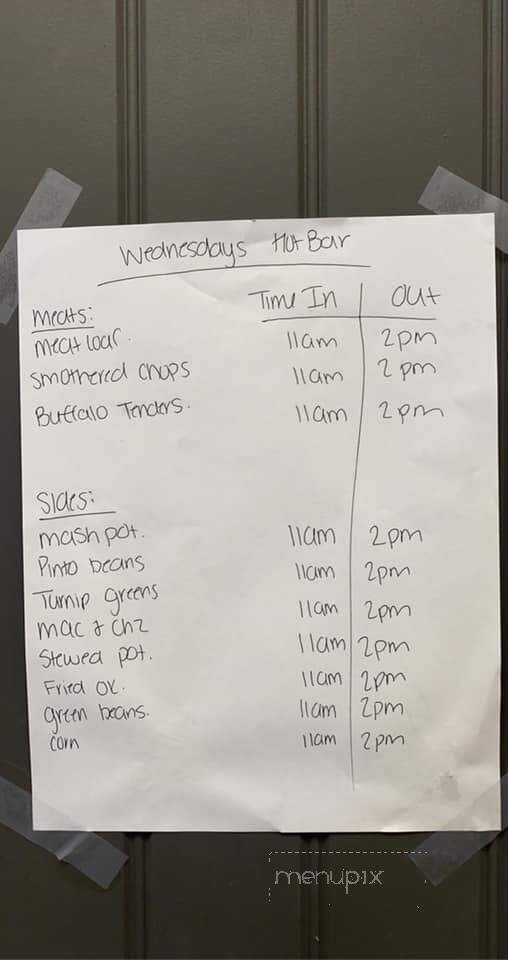 Wednesdays Hot Bar
Time In Out
Meats:
Meat loaf. 11am 2pm
Smothered Chops 11am 2pm
Buffalo Tenders. 11am 2pm
Sides:
mash pot. 11am 2pm
Pinto beans 11am 2pm
Turnip greens 11am 2pm
Mac & Chz 11am 2pm
Stewed pot. 11am 2pm
Fried OK. 11am 2pm
green beans. 11am 2pm
corn 11am 2pm
menupix